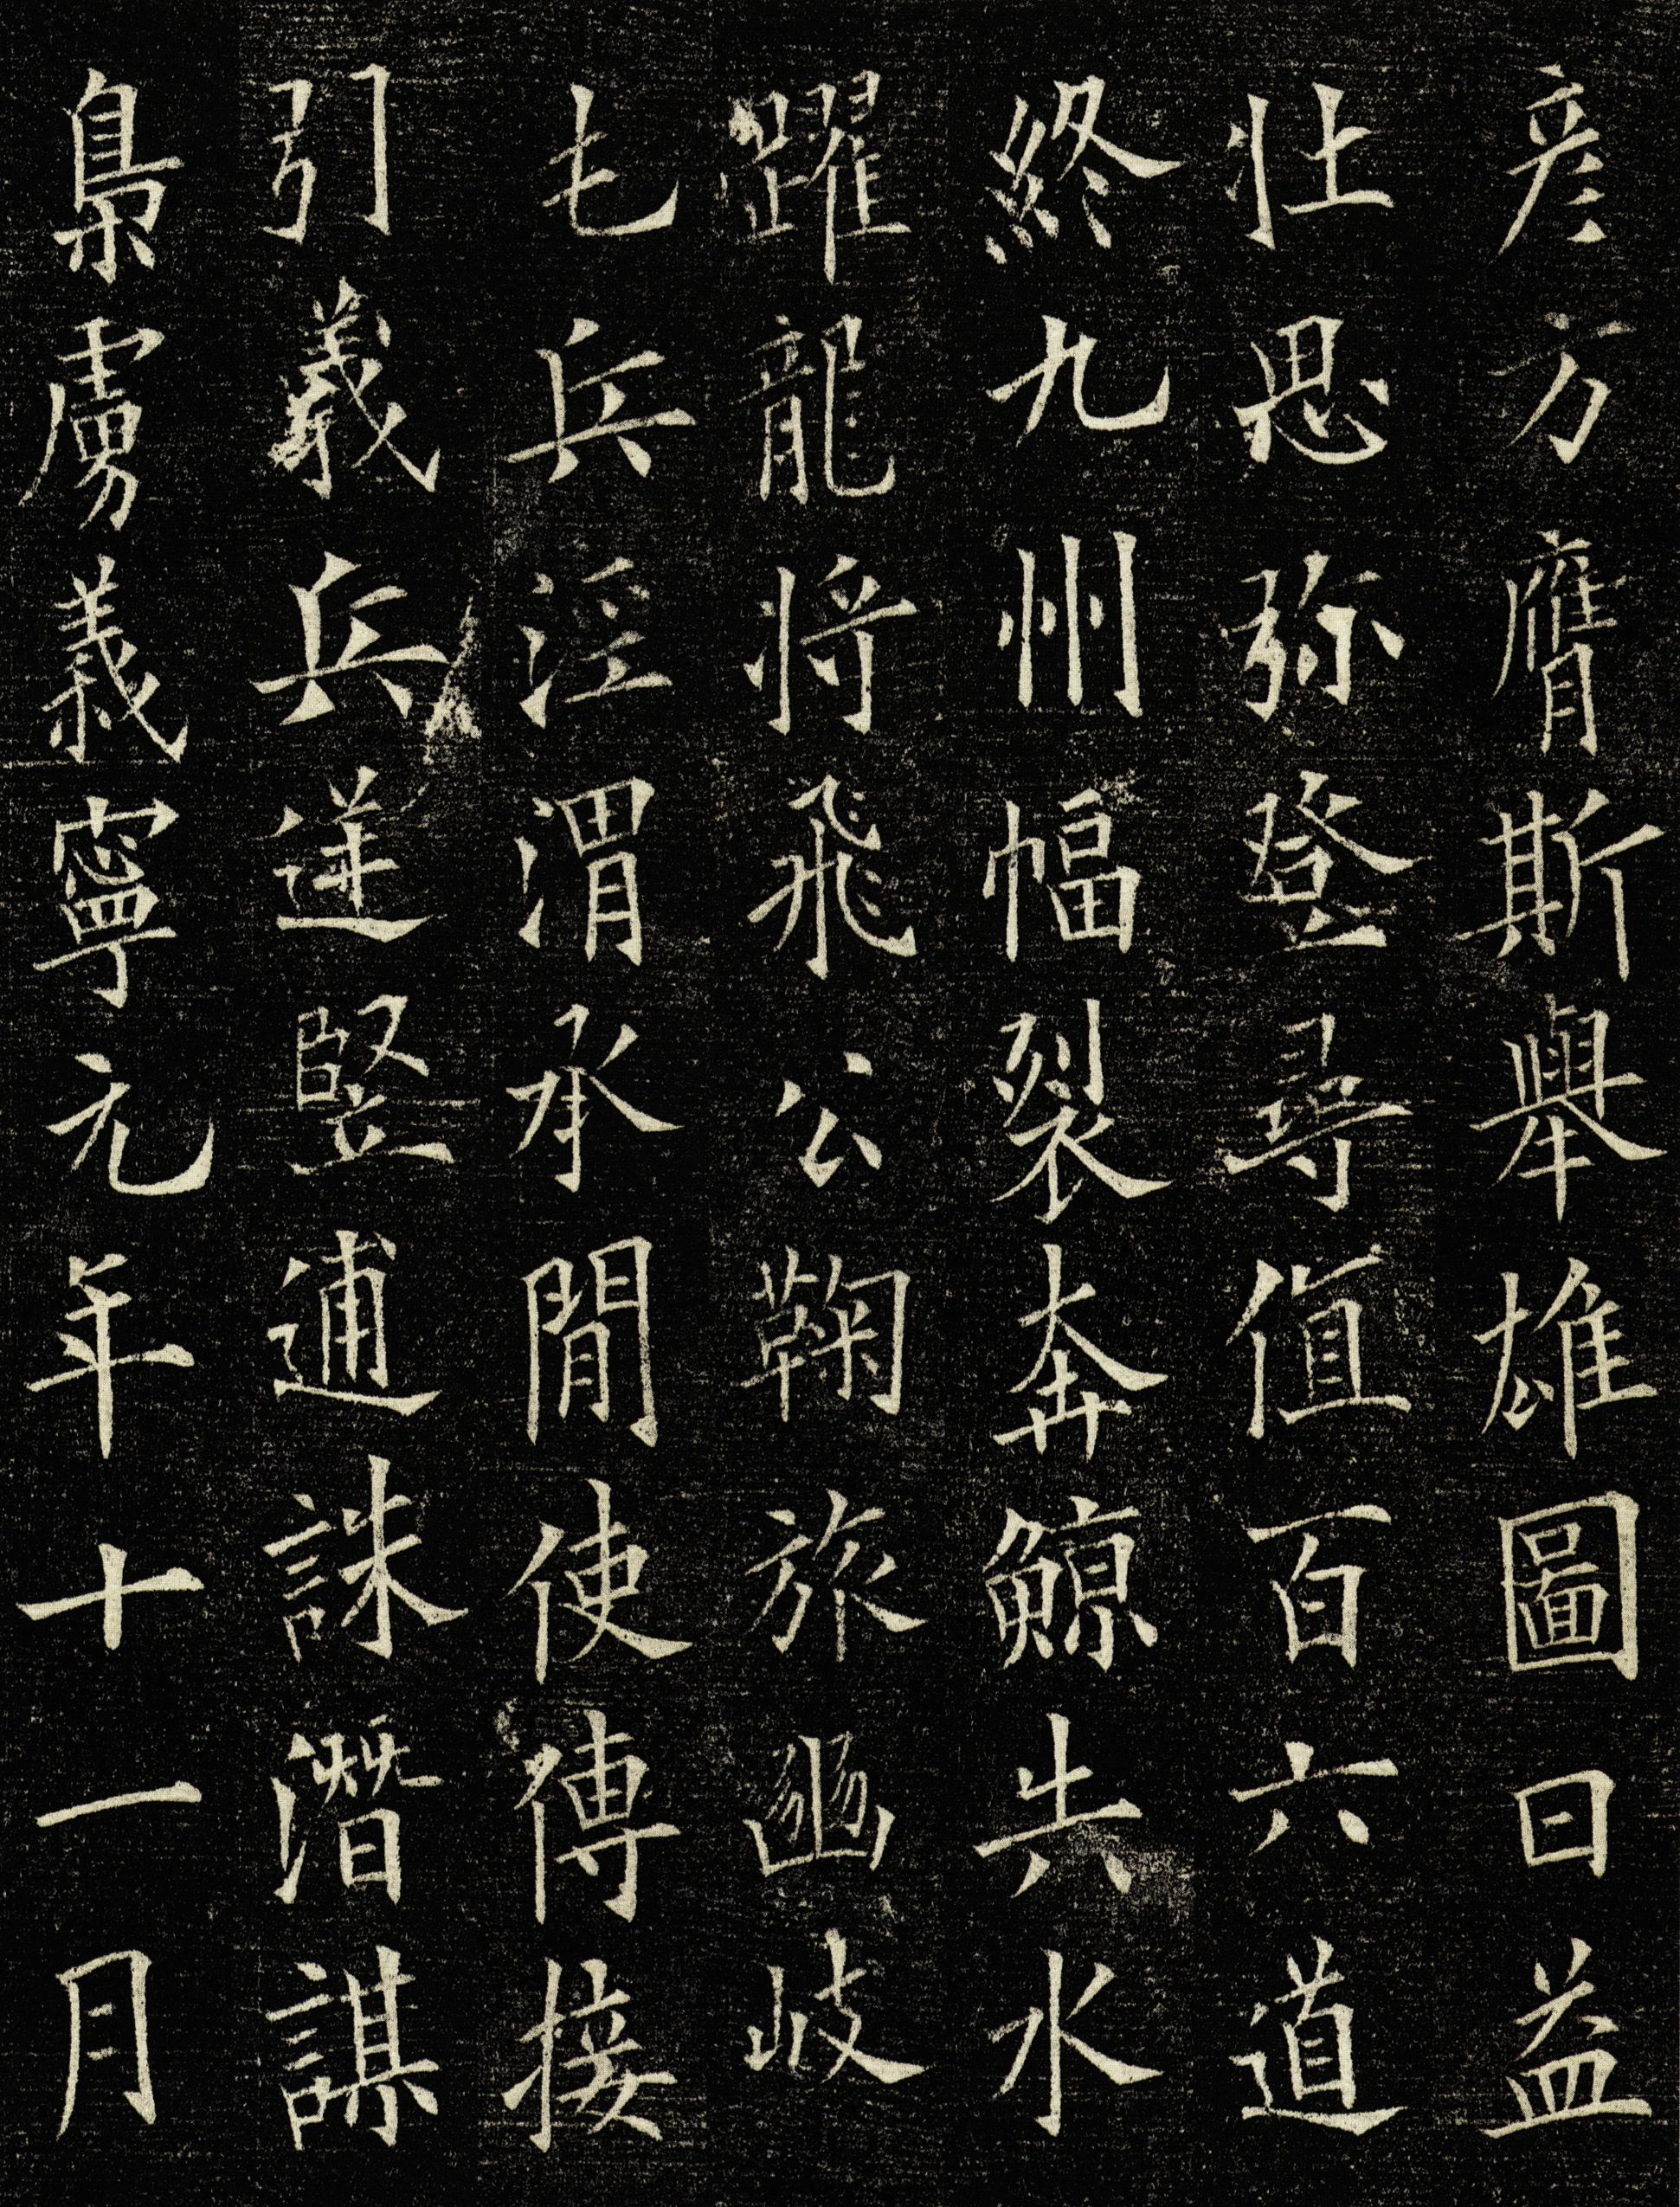 彦方膺斯舉雄圖日益
壯思弥登尋值百六道
終九州幅裂奔鯨共水
躍龍将飛公鞠旅豳岐
乇兵涇渭承閒使傳接
引義兵逆竪逋誅潛謀
梟虜義寧元年十一月